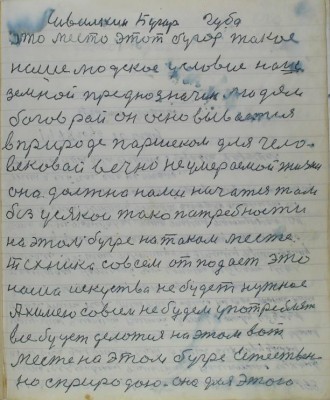 Чивилкин Бугор губа
это место этот бугор такое
наше людское условие наш
земной предназначин людям
богов рай он основывается
в природе паршеком для чело-
вековай вечно неумераемой жизни
она должно нами начатся там
без усякой тако патребности
на этом бугре на таком месте.
техника совсем отпадает это
наша искуства не будет нужное
А химею совсем не будем употреблят
все будет делотся на этом вот
месте на этом бугре Естествен-
но с природою. она для этого